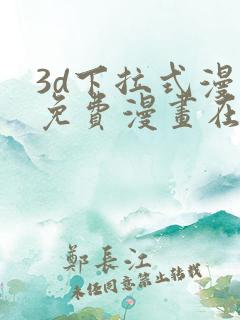 3d下拉式漫
免費漫畫在
鄭長江
未经同意禁止转载